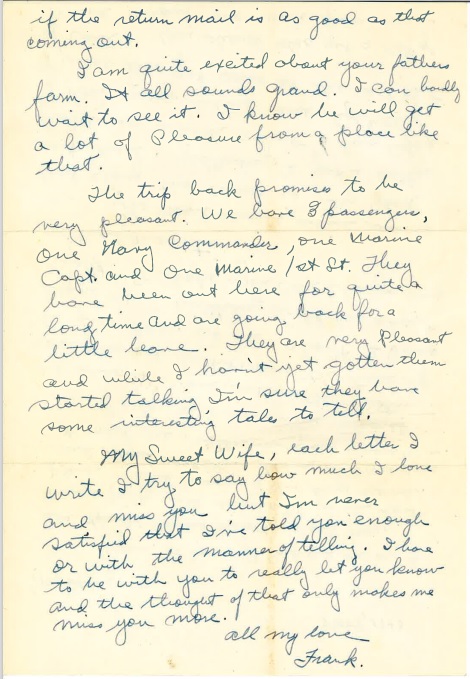 if the return mail is as good as that
coming out.
I am quite excited about your fathers
farm. It all sounds grand. I can hardly
wait to see it. I know he will get
a lot of Pleasure from a place like
that.
The trip back promises to be
very pleasant. We have 3 passengers,
one Navy Commander, one Marine
Capt. and One Marine 1st St. They
have been out here for quite a
long time and are going back for a
little leave. They are very Pleasant
and while I havn't yet gotten them
started talking I'm sure they have
some interesting tales to tell.
My Sweet Wife, each letter I
write I try to say how much I love
and miss you but I'm never
satisfied that I've told you enough
or with the manner of telling. I have
to be with you to really let you know
and the thought of that only makes me
miss you more.
all my love
Frank.